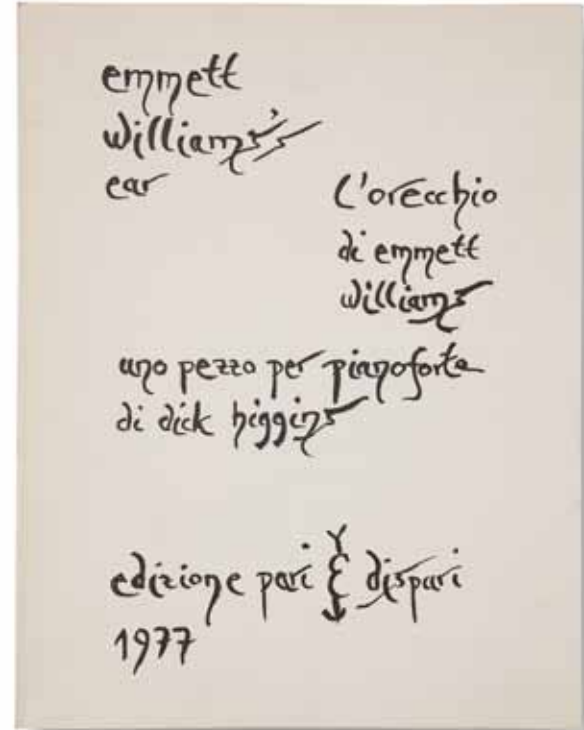 emmett
williams's
ear
l'orecchio
di emmett
williams
uno pezzo per pianoforte
di dick higgins
edizione pari & dispari
1977